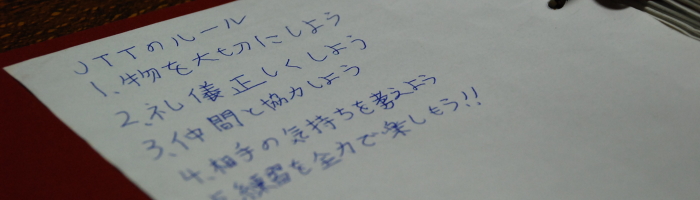 JTTのルール
1.物を大切にしよう
2.礼儀正しくしよう
3.仲間と協力しよう
4.相手の気持ちを考えよう
5.練習を全力で楽しもう!!